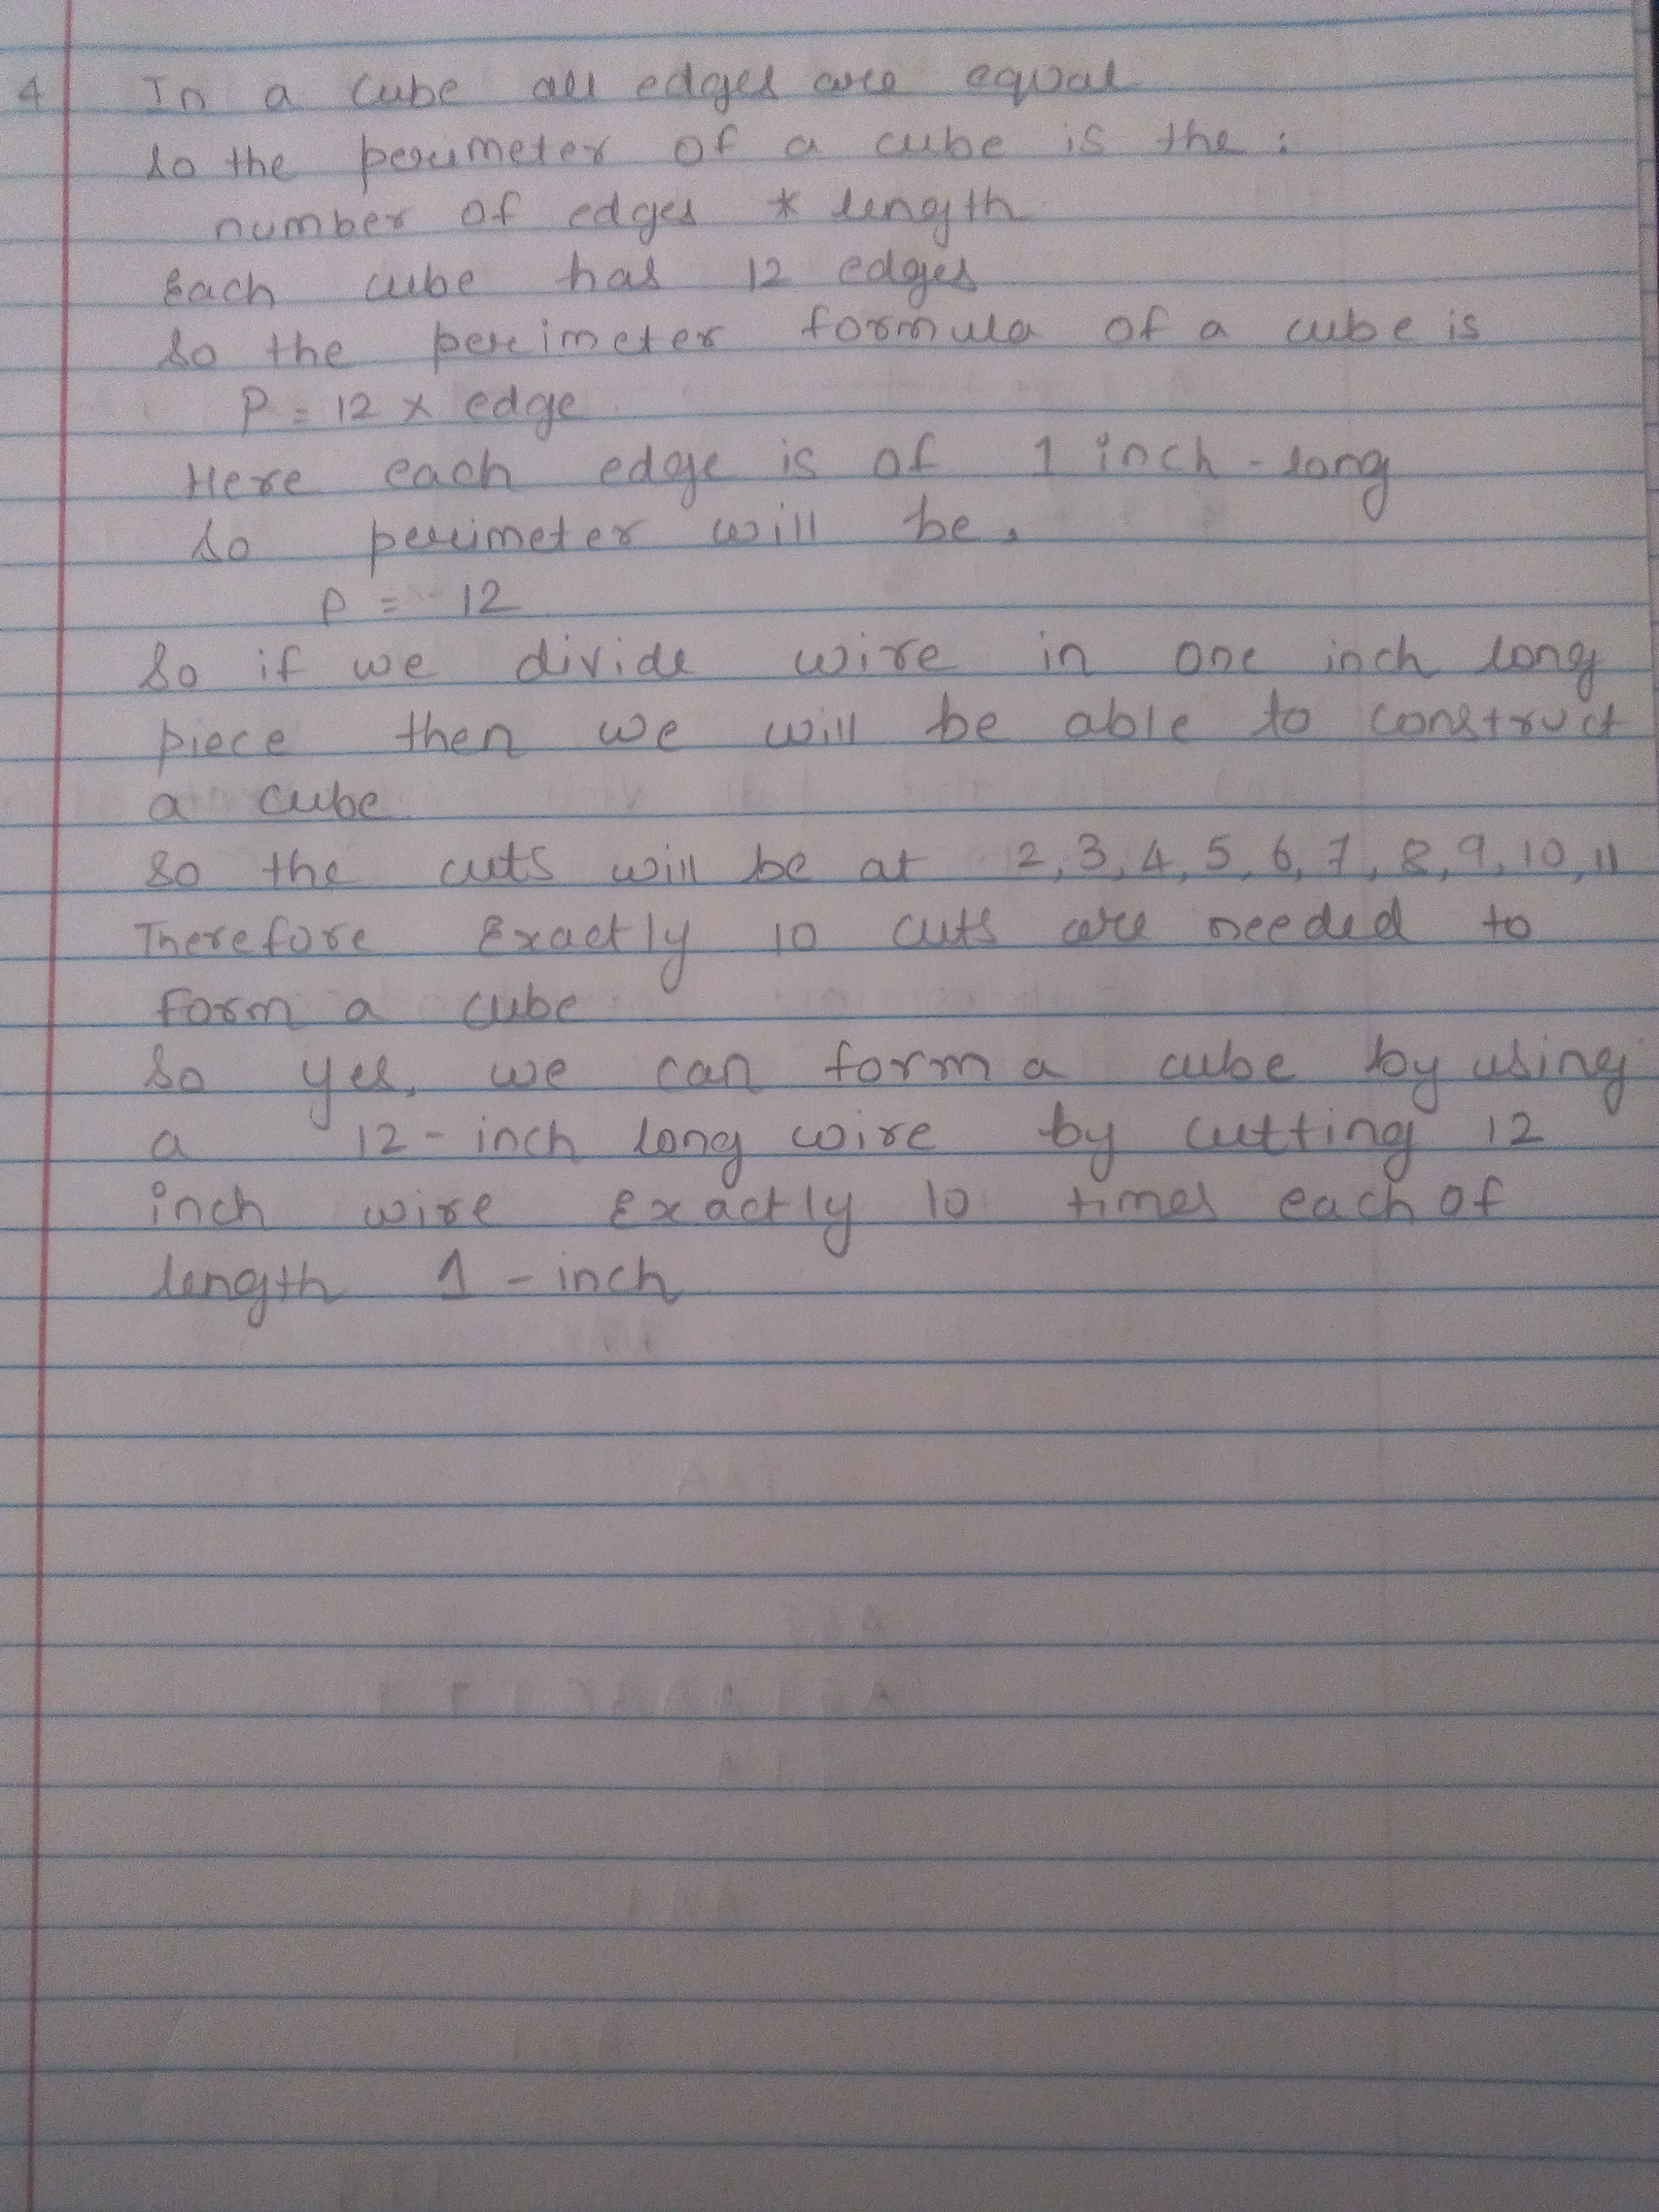 4 In a cube all edges are equal
So the perimeter of a cube is the :
number of edges * length
Each cube has 12 edges
So the perimeter formula of a cube is
P = 12 x edge
Here each edge is of 1 inch - long
So perimeter will be,
P = 12
So if we divide wire in one inch long
piece then we will be able to construct
a cube
So the cuts will be at 2, 3, 4, 5, 6, 7, 8, 9, 10, 11
Therefore Exactly 10 cuts are needed to
form a cube
So yes, we can form a cube by using
a 12 - inch long wire by cutting 12
inch wire Exactly 10 times each of
length 1 - inch